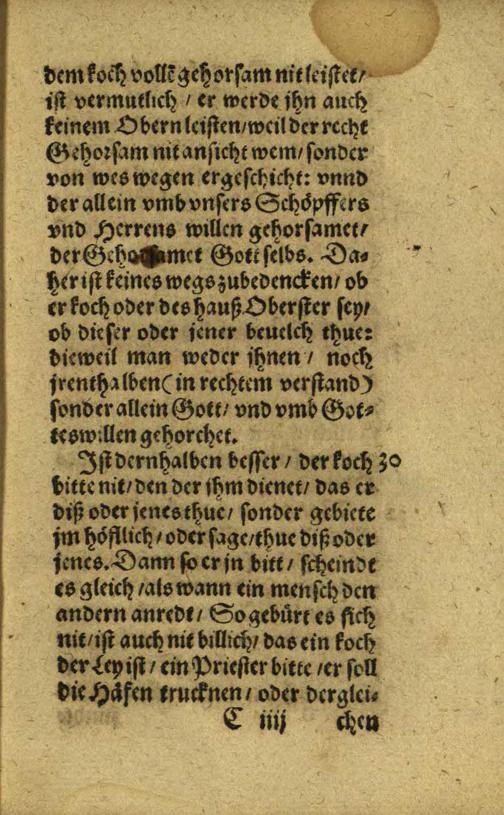 dem koch vollē gehorsam nit leistet/
ist vermutlich / er werde jhn auch
keinem Obern leisten/weil der recht
Gehorsam nit ansicht wem/ sonder
von wes wegen er geschicht: vnnd
der allein vmb vnsers Schöpffers
vnd Herrens willen gehorsamet/
der Gehorsamet Gott selbs. Da-
her ist keines wegs zubedencken/ ob
er koch oder des hauß Oberster sey/
ob dieser oder jener beuelch thue:
dieweil man weder jhnen / noch
jrenthalben (in rechtem verstand)
sonder allein Gott/ vnd vmb Got-
teswillen gehorchet.
Ist dernhalben besser / der koch 30
bitte nit/ den der jhm dienet/ das er
diß oder jenes thue/ sonder gebiete
jm höfllich/ oder sage/ thue diß oder
jenes. Dann so er jn bitt/ scheindt
es gleich /als wann ein mensch den
andern anredt/ So gebürt es sich
nit/ ist auch nit billich/ das ein koch
der Ley ist/ ein Priester bitte /er soll
die Häfen trucknen/ oder derglei-
C iiij chen